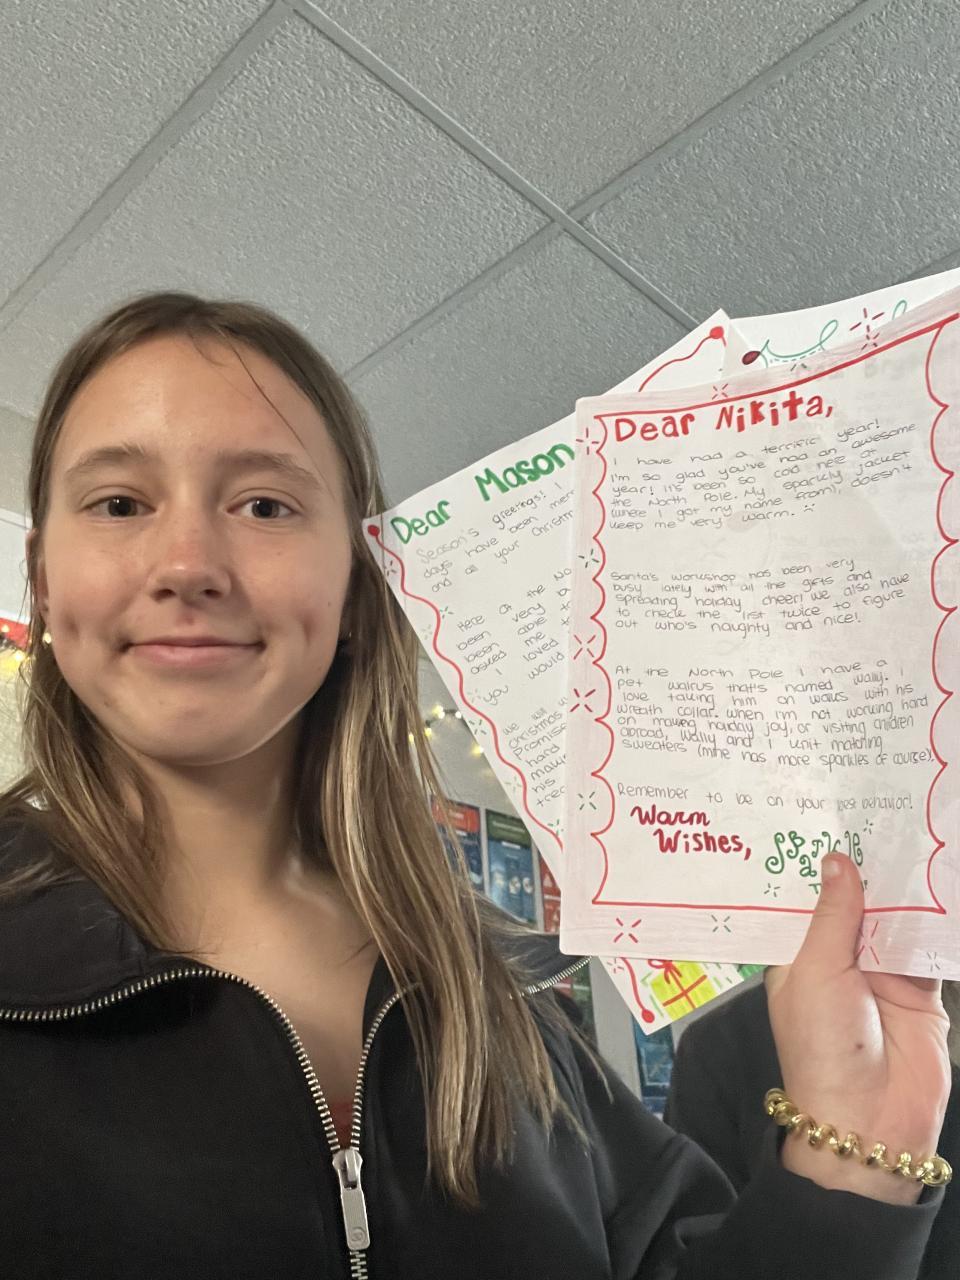 Dear Mason
Season's greetings! I
days have been merr
and all your Christm
Here at the No
been very b
been able to
asked me t
I loved
you would
we will
Christmas
Promise
hard
makin
his
trec
Dear Nikita,
I have had a terrific year!
I'm so glad you've had an awesome
year! It's been so cold here at
the North Pole. My sparkly jacket
(where I got my name from), doesn't
keep me very warm.
Santa's workshop has been very
busy lately with all the gifts and
spreading holiday cheer! We also have
to check the list twice to figure
out who's naughty and nice!
At the North Pole I have a
pet walrus that's named Wally. I
love taking him on walks with his
wreath collar. When I'm not working hard
on making holiday joy, or visiting children
abroad, Wally and I knit matching
sweaters (mine has more sparkles of course).
Remember to be on your best behavior!
Warm
Wishes,